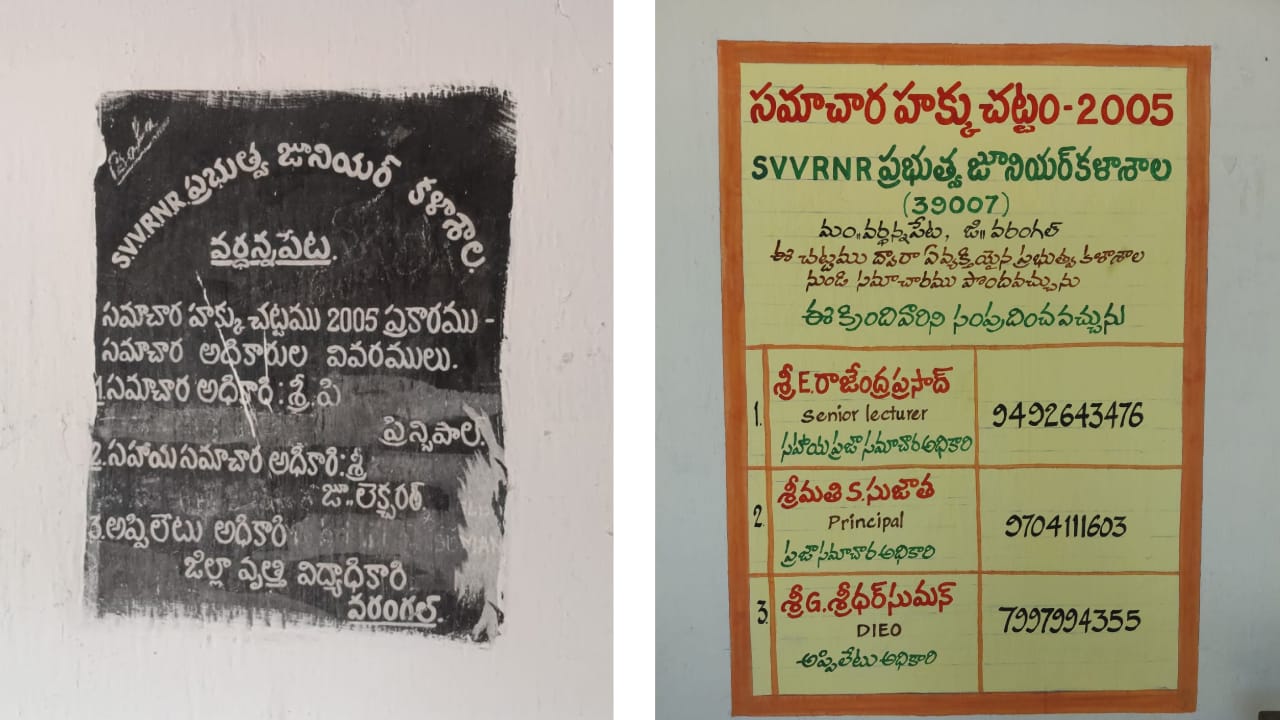 SVVRNR ప్రభుత్వ జూనియర్ కళాశాల.
వర్ధన్నపేట.
సమాచార హక్కు చట్టము 2005 ప్రకారము -
సమాచార అధికారుల వివరములు.
1.సమాచార అధికారి: శ్రీ.పి
ప్రిన్సిపాల్.
2.సహాయ సమాచార అధికారి: శ్రీ
జూ॥ లెక్చరర్.
3.అప్పిలేటు అధికారి
జిల్లా వృత్తి విద్యాధికారి.
వరంగల్.
సమాచార హక్కు చట్టం-2005
SVVRNR ప్రభుత్వ జూనియర్ కళాశాల
(39007)
మం॥ వర్ధన్నపేట, జి॥ వరంగల్
ఈ చట్టము ద్వారా ఏవ్యక్తియైన ప్రభుత్వ కళాశాల
నుండి సమాచారము పొందవచ్చును
ఈ క్రిందివారిని సంప్రదించవచ్చును
1. శ్రీ E.రాజేంద్రప్రసాద్
Senior lecturer 9492643476
సహాయ ప్రజా సమాచార అధికారి
2. శ్రీమతి S.సుజాత
Principal 9704111603
ప్రజా సమాచార అధికారి
3. శ్రీ G.శ్రీధర్ సుమన్
DIEO 7997994355
అప్పిలేటు అధికారి